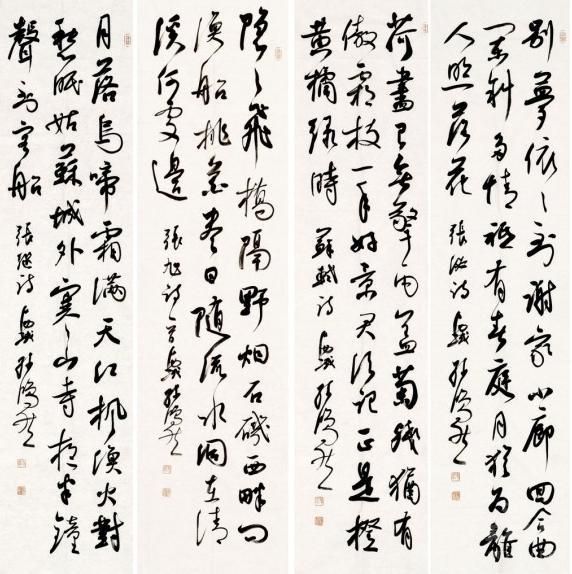 别夢依〻到謝家小廊回合曲
闌斜多情祗有春庭月猶為離
人照落花 張泌詩
荷盡已無擎雨蓋菊殘猶有
傲霜枝一年好景君須記正是橙
黄橘綠時 蘇軾詩
隱〻飛橋隔野烟石磯西畔問
漁船桃花盡日隨流水洞在清
溪何處邊 張旭詩一首
月落烏啼霜滿天江楓漁火對
愁眠姑蘇城外寒山寺夜半鐘
聲到客船 張繼詩